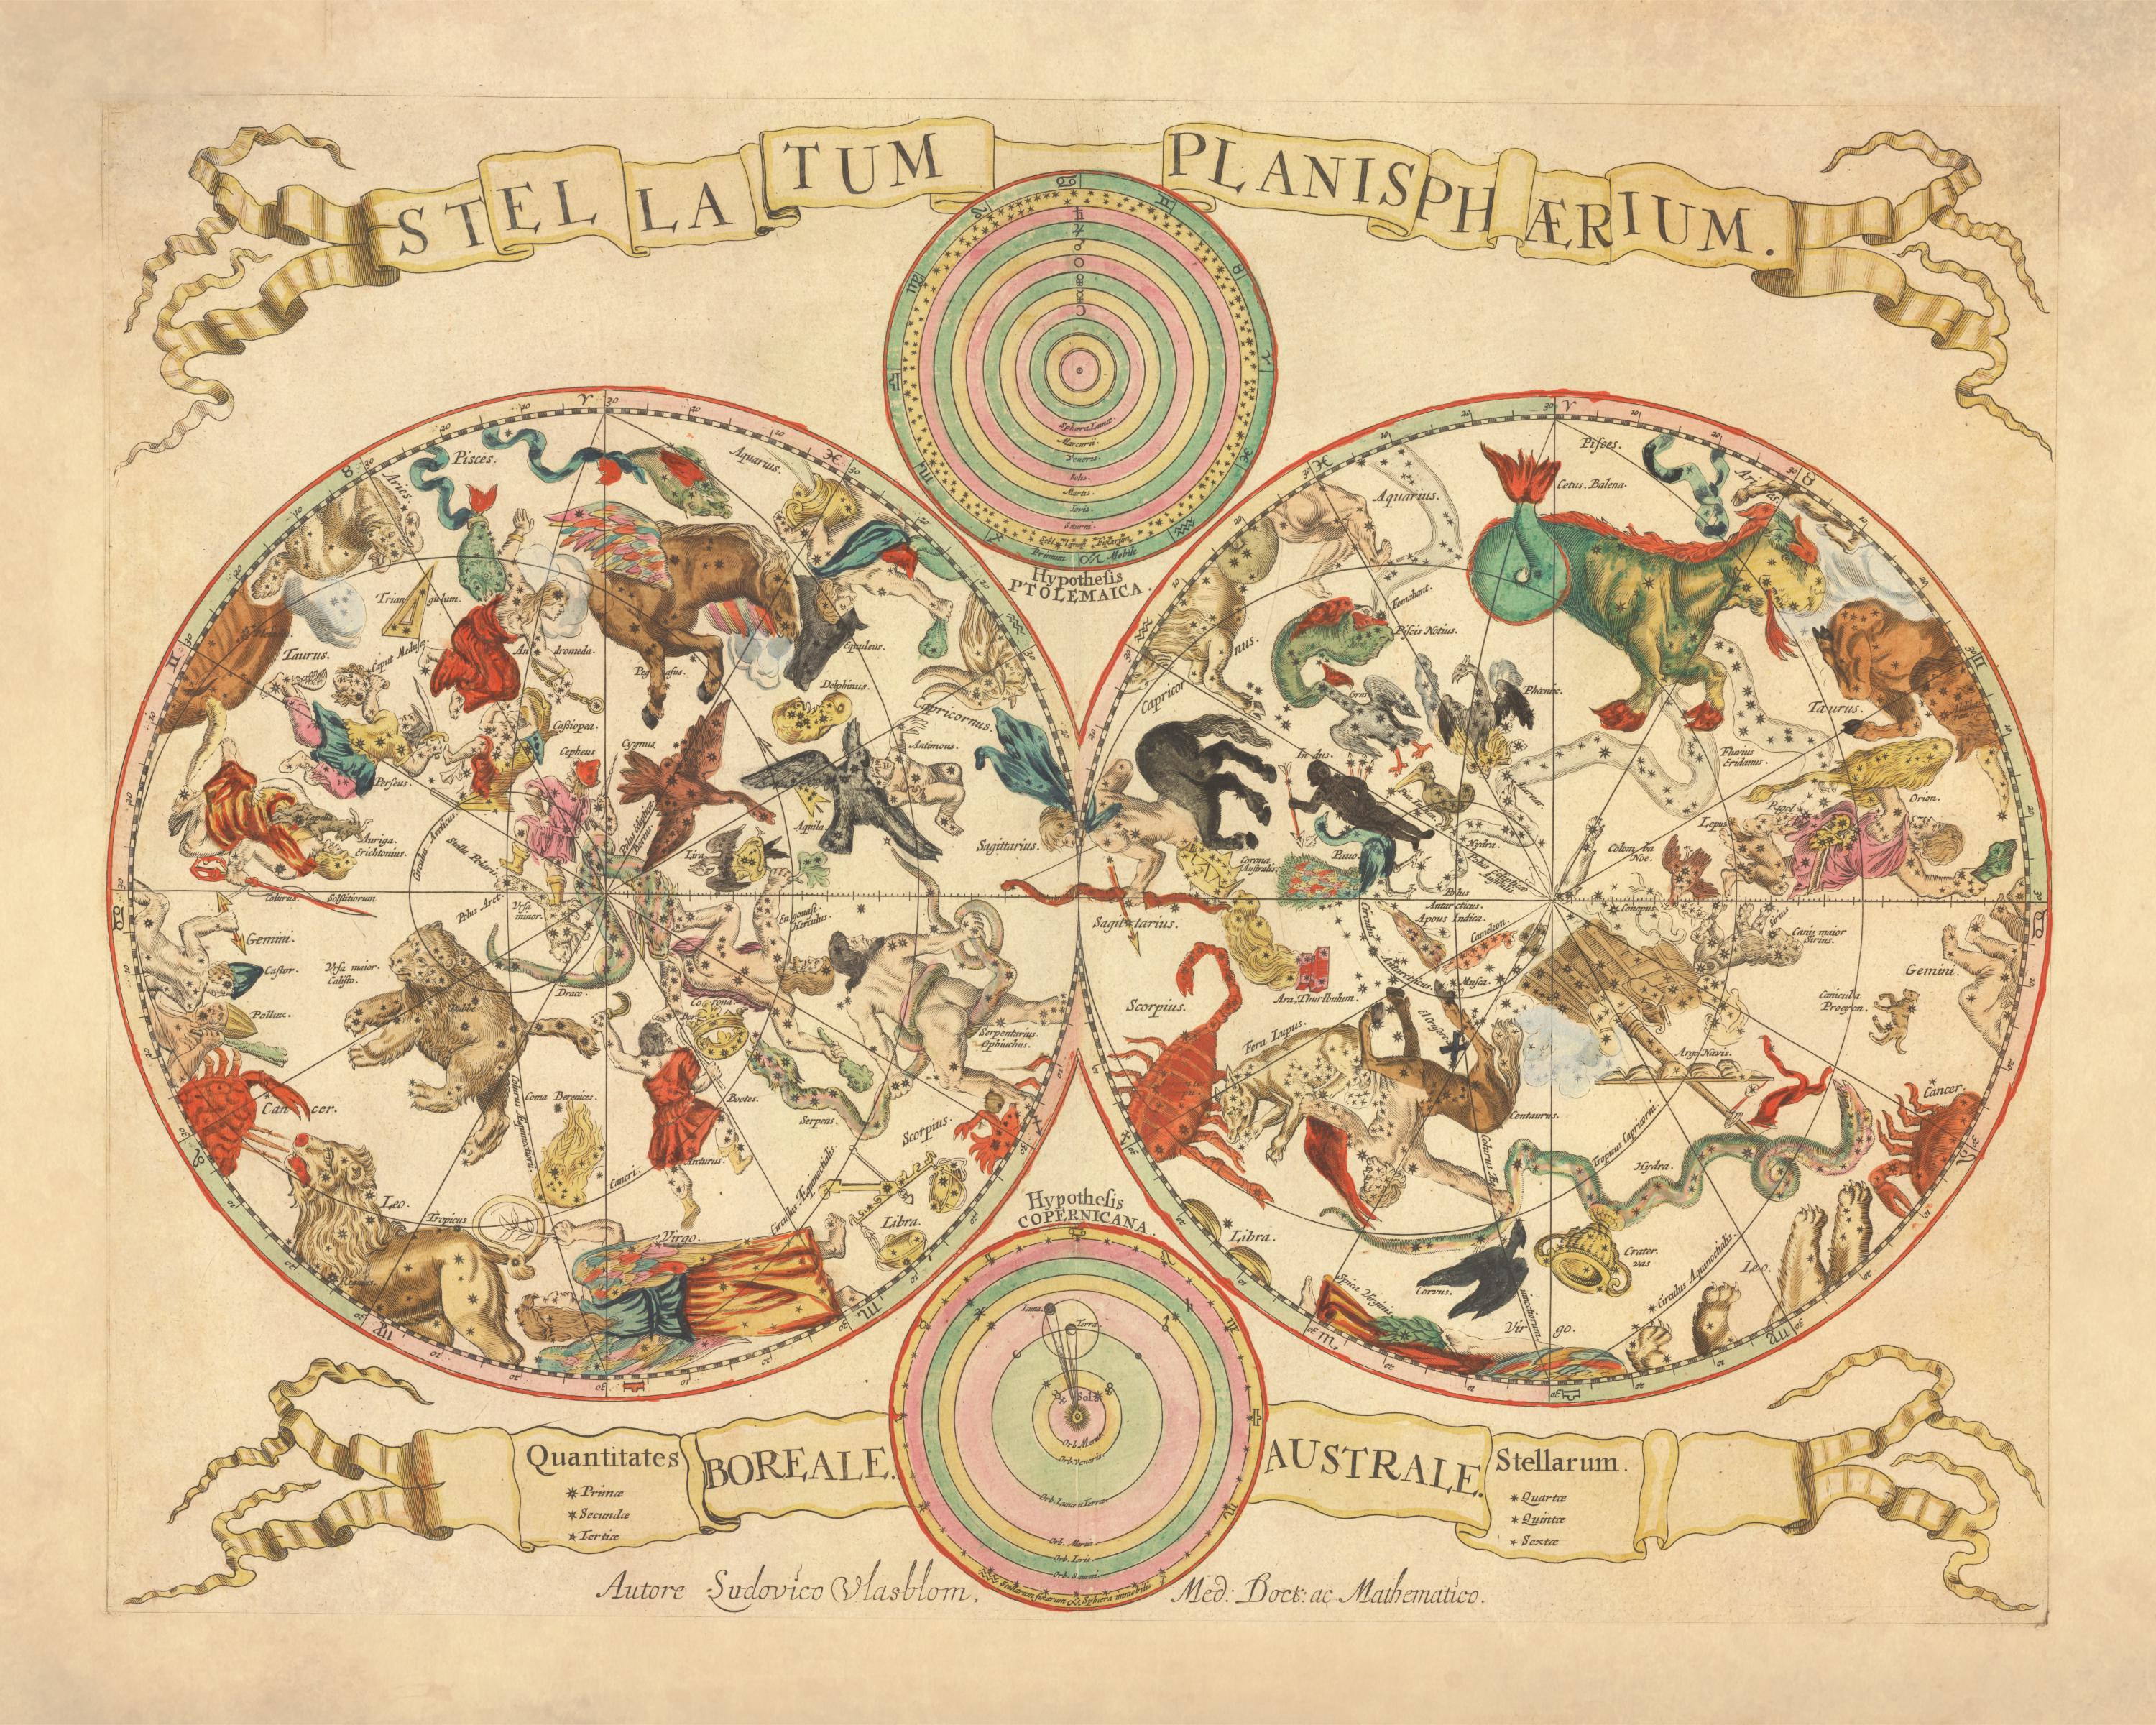 STELLATUM PLANISPHÆRIUM.
Sphæra Lunæ.
Mercurii.
Veneris.
Solis.
Martis.
Iovis.
Saturni.
Primum Mobile
Hypothesis
PTOLEMAICA.
Pisces.
Aquarius.
Aries.
Triangulum.
Taurus.
Caput Medusæ
Andromeda.
Pegasus.
Equuleus.
Delphinus.
Capricornus.
Cassiopea.
Cepheus
Cygnus
Antinous.
Perseus.
Aquila
Lira
Sagittarius.
Capella
Auriga.
Erichtonius.
Circulus Arcticus.
Stella Polaris.
Colurus
Solstitiorum
Polus Arct.
Vrsa
minor.
Engonasi.
Herculus.
Gemini.
Castor.
Vrsa maior.
Calisto.
Pollux.
Dubbe
Draco.
Corona.
Serpentarius.
Ophiuchus.
Cancer.
Coma Berenices.
Bootes.
Serpens.
Scorpius.
Arcturus.
Leo.
Tropicus
Cancri.
Circulus Æquinoctialis
Virgo.
Libra.
Regulus.
Pisces.
Aries
Cetus. Balena.
Aquarius.
Fomahant.
Piscis Notius.
Capricornus.
Grus
Phœnix.
Taurus.
Indus.
Fluvius
Eridanus.
Orion.
Rigel
Lepus
Hydra.
Columba
Noe.
Pauo
Corona
Australis.
Polus
Antarcticus.
Apous Indica.
Canopus.
Sagittarius.
Cameleon.
Canis maior
Sirius.
Gemini.
Musca.
Antarcticus.
Circulus
Ara, Thuribulum.
Scorpius.
Canicula
Procyon.
Fera Lupus.
Argo Navis.
Centaurus.
Cancer.
Tropicus Capricorni.
Hydra.
Libra.
Crater.
vas
Corvus.
Circulus Æquinoctialis.
Leo.
Spica Virginis
Virgo.
Hypothesis
COPERNICANA.
Luna.
Terra
Sol
Orb. Veneris.
Orb. Lunæ et Terræ.
Orb. Martis.
Orb. Iovis.
Orb. Saturni.
Stellarum fixarum Sphæra immobilis
Quantitates
Primæ
Secundæ
Tertiæ
BOREALE.
AUSTRALE.
Stellarum.
Quartæ
Quintæ
Sextæ
Autore Ludovico Vlasblom, Med: Doct: ac Mathematico.